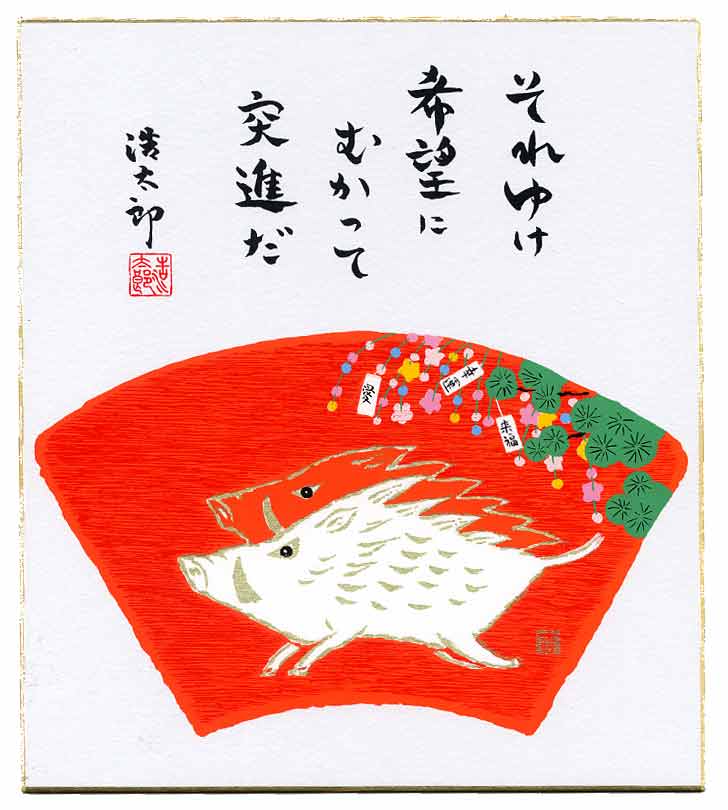 それゆけ
希望に
むかって
突進だ
浩太郎
浩太郎
愛
来福